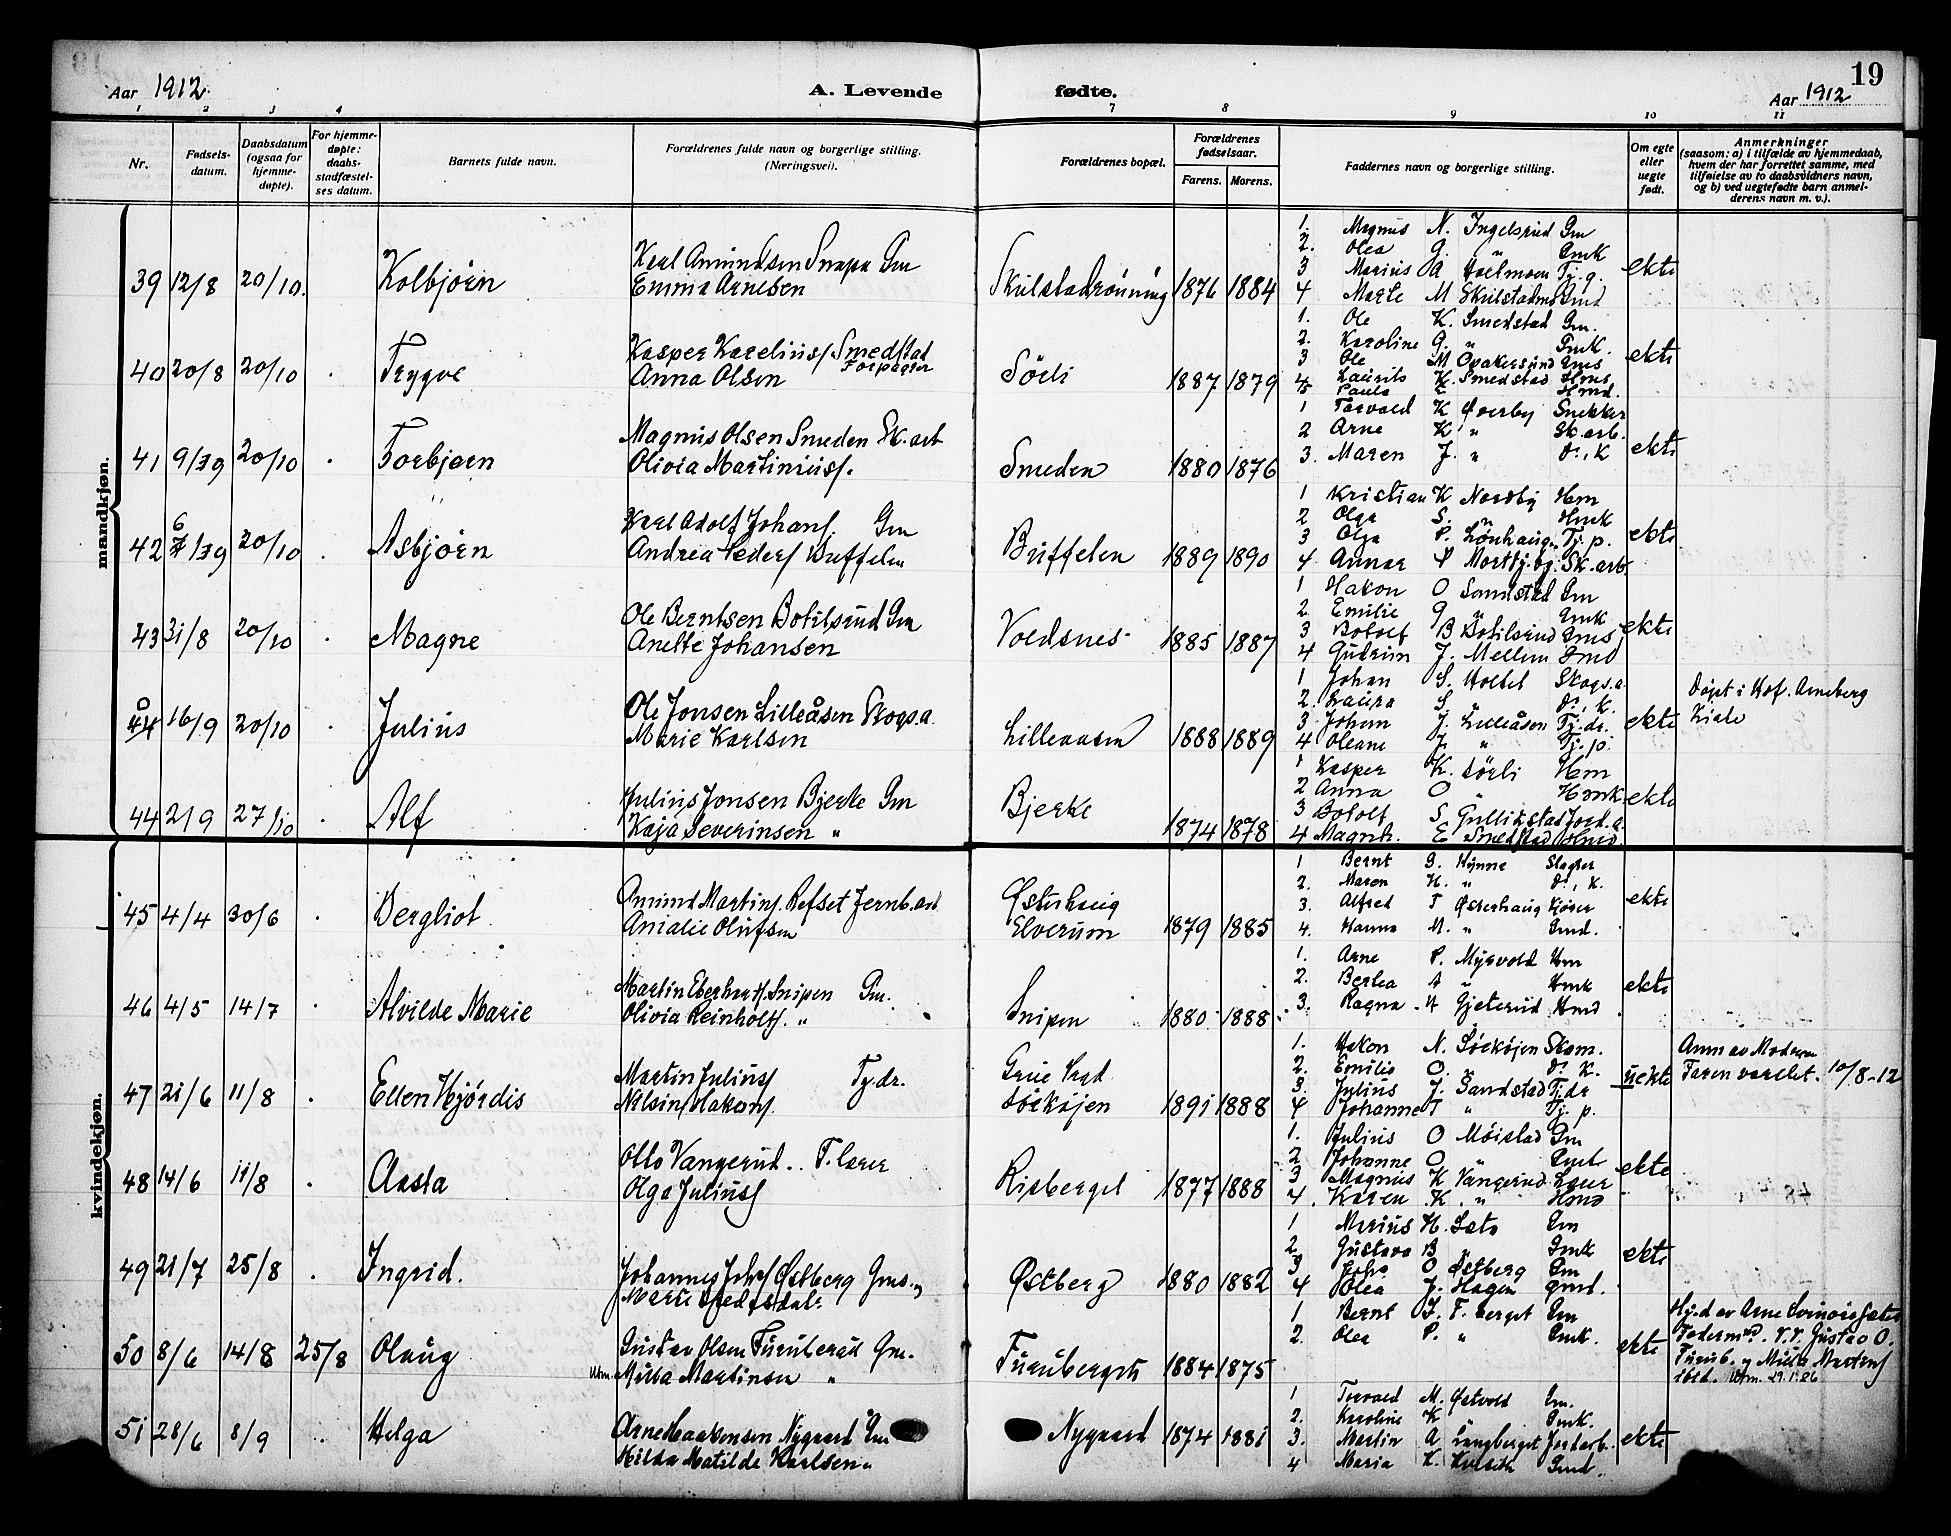 19
Aar 1912
A. Levende fødte.
Aar 1912
1 2 3 4 7 8 9 10 11
Nr.
Fødsels-datum.
Daabsdatum (ogsaa for hjemme-døpte).
For hjemme-døpte: daabs-stadfæstel-ses datum.
Barnets fulde navn.
Forældrenes fulde navn og borgerlige stilling. (Næringsvei).
Forældrenes bopæl.
Forældrenes fødselsaar.
Farens. Morens.
Faddernes navn og borgerlige stilling.
Om egte eller uegte født.
Anmerkninger
(saasom: a) i tilfælde av hjemmedaab,
hvem der har forrettet samme, med
tilføielse av to daabsvidners navn,
og b) ved uegtefødte barn anmel-
derens navn m. v.).
mandkjøn.
39 12/8 20/10. Kolbjörn
Karl Amundsen Snapa Gm
Emma Arnesen
Skulstadrönning 1876 1884
1. Magnus N. Ingelsrud Gm
2. Olea G. " Gmk
3 Marius A Haelmoen Tj. g.
4 Marte M Skulstadmo Gmd
ekte
40 20/8 20/10 Trygve
Kasper Kareliuss Smedstad Forpagter
Anna Olsen
Sörli 1887 1879
1. Ole K. Smedstad Gm.
2. Karoline G. " Gmk.
3 Ole M Opakersund Gms
4 Laurits K. Smedstad Hms
5 Paula Hmd.
ekte
41 9/39 20/10 Torbjørn
Magnus Olsen Smeden Sk. arb
Olivia Martiniuss.
Smeden 1880 1876
1 Torvald K Øverby Snekker
2 Arne K " Sk. arb.
3. Maren J. " Do, K
ekte
42 6/39 20/10 Asbjørn
Karl Adolf Johans. Gm
Andrea Peders Buffelen
Buffelen 1889 1890
1 Kristian K Nordby Hm
2 Olga S. " Hmk
3 Olga P. Lönhaug Tj. p.
4 Annar P Mortby.bg. Sk. arb.
ekte
43 31/8 20/10 Magne
Ole Berntsen Botilsrud Gm
Anette Johansen
Voldsnes 1885 1887
1 Hakon O Sandstad Gm
2. Emilie G " Gmk
3 Botolf B Botilsrud Gms
4 Gudrun J. Mellem Gmd
ekte
44 16/9 20/10 Julius
Ole Jonsen Lilleåsen Skogs.a.
Marie Karlsen
Lilleaasen 1888 1889
1 Johan S. Holtet Skogs.a.
2. Laura S. " Do, k.
3. Johan J. Lilleåsen Tj. dr.
4 Oleane J. " Tj. p.
ekte
Døpt i Hof. Arneberg
Kirke
44 21/9 27/10 Alf
Julius Jonsen Bjerke Gm
Kaja Severinsen "
Bjerke 1874 1878
1 Kasper K. Sörli Hm
2 Anna O " Hmk
3 Botolf S. Gullikstad Jord.a.
4 Magnh. E Smedstad Hmd
ekte
kvindekjøn.
45 4/4 30/6 Bergliot
Amund Martins. Refset Jernb.arb
Amalie Olufsen
Østerhaug
Elverum 1879 1885
1 Bernt G. Kynne Slagter
2. Maren H. " Do, K.
3. Alfred T Østerhaug Kjører
4. Hanna M. " Gmd.
ekte
46 4/5 14/7 Alvilde Marie
Martin Eberharts. Snipen Gm.
Olivia Reinholts. "
Snipen 1880 1888
1. Arne P. Myrvold Hm
2. Bertea A " Hmk
3. Ragna H Gjeterud Hmd
ekte
47 21/6 11/8 Ellen Hjördis
Martin Juliuss Tj.dr.
Nilsine Hakons.
Grue
Sörköjen 1891 1888
1. Hakon N. Sörköjen Skom.
2. Emilie O. " Do K.
3. Julius J. Sandstad Tj.dr
4 Johanne T " Tj. p.
uekte
Anm av Moderen
Faren varslet. 10/8-12
48 14/6 11/8 Aasta
Otto Vangerud. . F. lærer
Olga Juliuss
Risberget 1877 1888
1. Julius O Möistad Gm
2 Johanne O " Gmk
3 Magnus K Vangerud Lærer
4. Karen K. " Hmd
ekte
49 21/7 25/8 Ingrid.
Johannes Johs Østberg Gms.
Østberg 1880 1882
1 Marius H. Sæta Gm
2. Gustava B " Gmk
3 Johs O Østberg Gm
4 Olea J. Hagen Gmd.
ekte
50 8/6 14/8 25/8 Olaug
Gustav Olsen Furuberget Gm.
Milla Martinsen "
Furuberget 1884 1875
1 Bernt F. berget Gm
2. Olea P. " Gmk.
ekte
Hj.d av Arne
Gustav O.
Furub. og Milla Martins
51 28/6 8/9 Helga
Arne Haakonsen Nygaard Gm
Hilda Matilde Karlsen "
Nygaard 1874 1881
1 Torvald M. Østvold Gm.
2. Karoline K " Gmk.
3. Martin A Langberget Jordarb.
4 Maria K. Gmd.
ekte